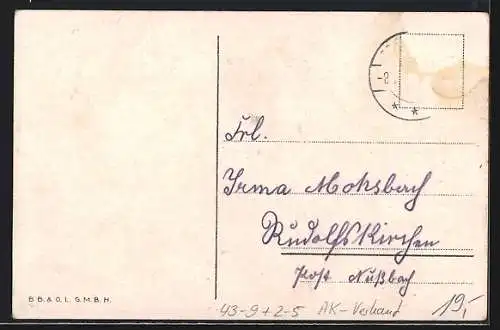 - 8
* *
Frl.
Irma Moksbach
Rudolfskirchen
Post Nußbach
B. B. & O. L. G. M. B. H.
43-9+2-5 AK-Versand
19,-